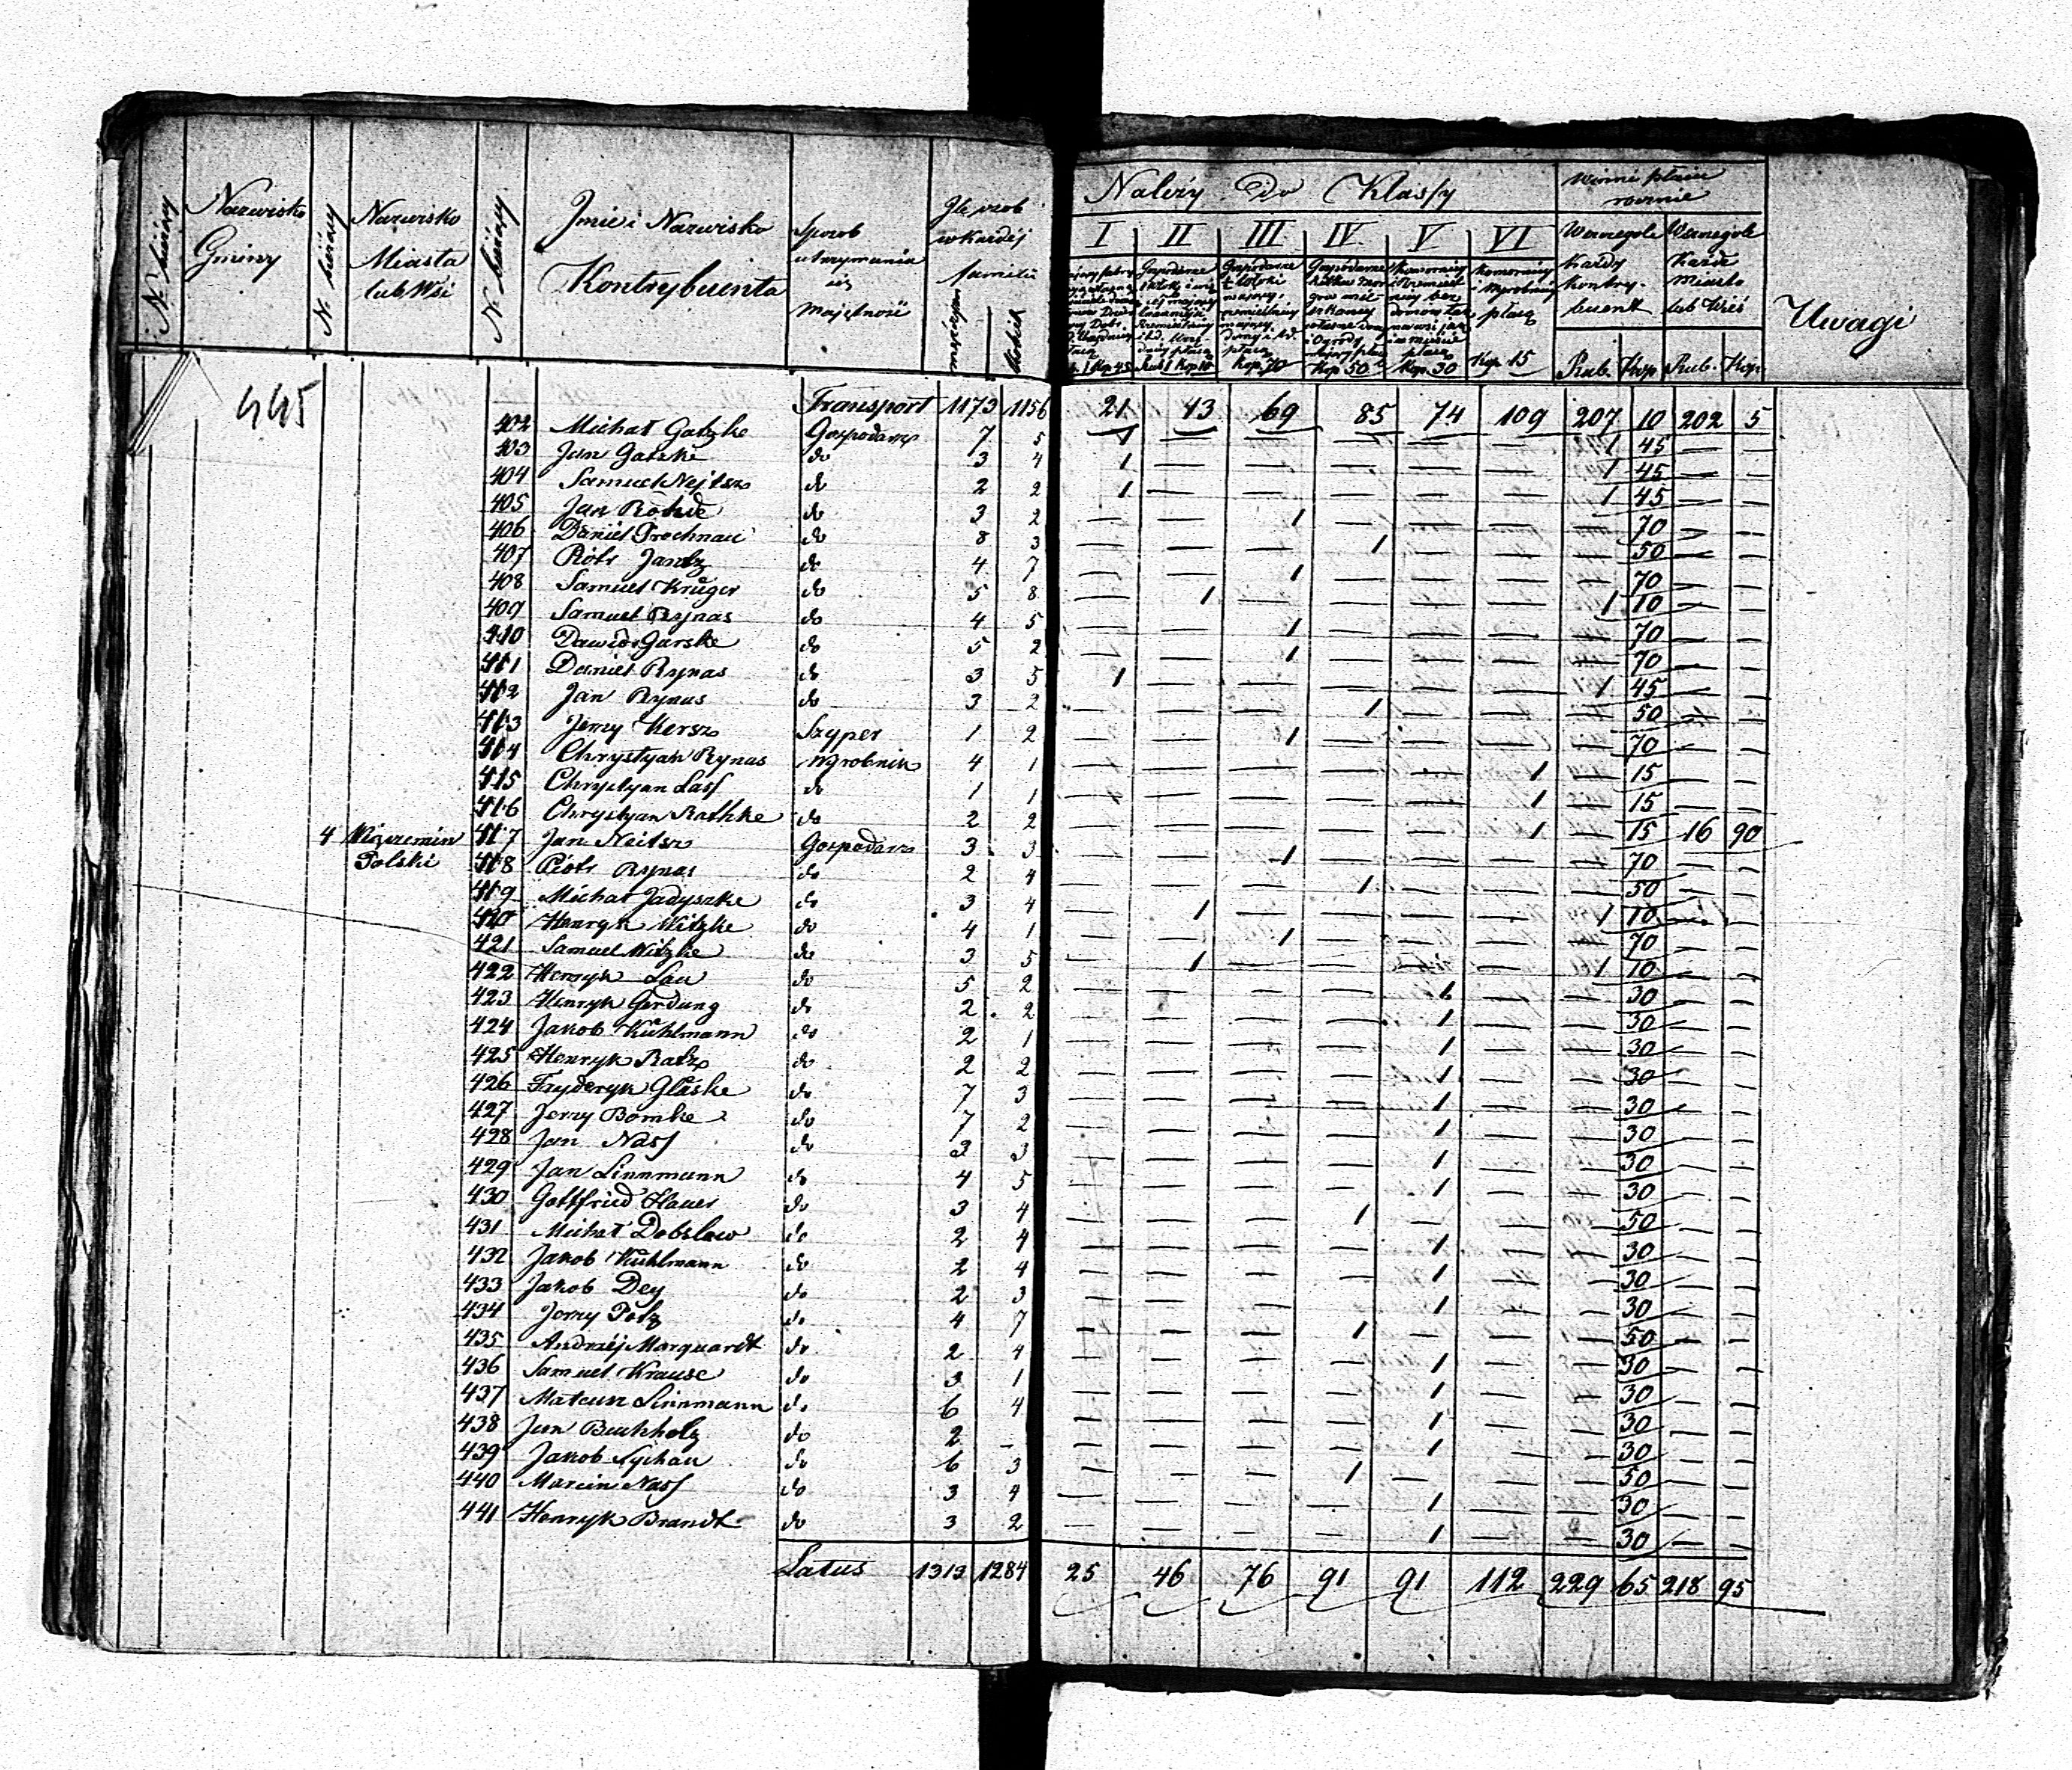 N. bieżący
Nazwisko Gminy
N. bieżący
Nazwisko Miasta lub Wsi
N. bieżący
Jmie i Nazwisko Kontrybuenta
Sposob utrzymania się majętność
Jle osob w każdéj familii
męzkiej
kobiet
Należy Do Klassy
I II III IV V VI
płacą Kop 15
płacą Kop. 30
Kop. 50
płacą Kop. 70
Rub 1 Kop 10
1 Kop 45
Winni płacić rocznie
Każdy kontrybuent
Rub. Kop
Każde miasto lub Wieś
Rub. Kop.
Uwagi
445
Transport 1173 1156 21 43 69 85 74 109 207 10 202 5
402 Michał Gatzke Gospodarz 7 5 1 — — — — — 1 45 — —
403 Jan Gatzke do 3 4 1 — — — — — 1 45 — —
404 Samuel Nejtsz do 2 2 1 — — — — — 1 45 — —
405 Jan Röhde do 3 2 — — 1 — — — — 70 — —
406 Daniel Prochnau do 8 3 — — — 1 — — — 50 — —
407 Piotr Jantz do 4 7 — — 1 — — — — 70 — —
408 Samuel Krüger do 5 8 — 1 — — — — 1 10 — —
409 Samuel Rynas do 4 5 — — 1 — — — — 70 — —
410 Dawid Garske do 5 2 — — 1 — — — — 70 — —
411 Daniel Rynas do 3 5 1 — — — — — 1 45 — —
412 Jan Rynas do 3 2 — — — 1 — — — 50 — —
413 Jerzy Kersz Szyper 1 2 — — 1 — — — — 70 — —
414 Chrystyan Rynas Wyrobnik 4 1 — — — — — 1 — 15 — —
415 Chrystyan Lass do 1 1 — — — — — 1 — 15 — —
416 Chrystyan Rathke do 2 2 — — — — — 1 — 15 16 90
4 Wiączemin Polski 417 Jan Neitsz Gospodarz 3 3 — — 1 — — — — 70 — —
418 Piotr Rynas do 2 4 — — — 1 — — — 50 — —
419 Michał Jadyszke do 3 4 — 1 — — — — 1 10 — —
420 Henryk Witzke do 4 1 — — 1 — — — — 70 — —
421 Samuel Witzke do 3 5 — 1 — — — — 1 10 — —
422 Henryk Lau do 5 2 — — — — 1 — — 30 — —
423 Henryk Gerdung do 2 2 — — — — 1 — — 30 — —
424 Jakob Kühlmann do 2 1 — — — — 1 — — 30 — —
425 Henryk Ratz do 2 2 — — — — 1 — — 30 — —
426 Fryderyk Gläske do 7 3 — — — — 1 — — 30 — —
427 Jerzy Bömke do 7 2 — — — — 1 — — 30 — —
428 Jan Nass do 3 3 — — — — 1 — — 30 — —
429 Jan Linnmann do 4 5 — — — — 1 — — 30 — —
430 Gottfried Hauer do 3 4 — — — 1 — — — 50 — —
431 Michał Dobslaw do 2 4 — — — — 1 — — 30 — —
432 Jakob Kühlmann do 2 4 — — — — 1 — — 30 — —
433 Jakob Dey do 2 3 — — — — 1 — — 30 — —
434 Jerzy Polz do 4 7 — — — 1 — — — 50 — —
435 Andrzéj Marquardt do 2 4 — — — — 1 — — 30 — —
436 Samuel Krause do 3 1 — — — — 1 — — 30 — —
437 Mateusz Linnmann do 6 4 — — — — 1 — — 30 — —
438 Jan Buchholz do 2 — — — — — 1 — — 30 — —
439 Jakob Lychau do 6 3 — — — 1 — — — 50 — —
440 Marcin Nass do 3 4 — — — — 1 — — 30 — —
441 Henryk Brandt do 3 2 — — — — 1 — — 30 — —
Latus 1313 1284 25 46 76 91 91 112 229 65 218 95